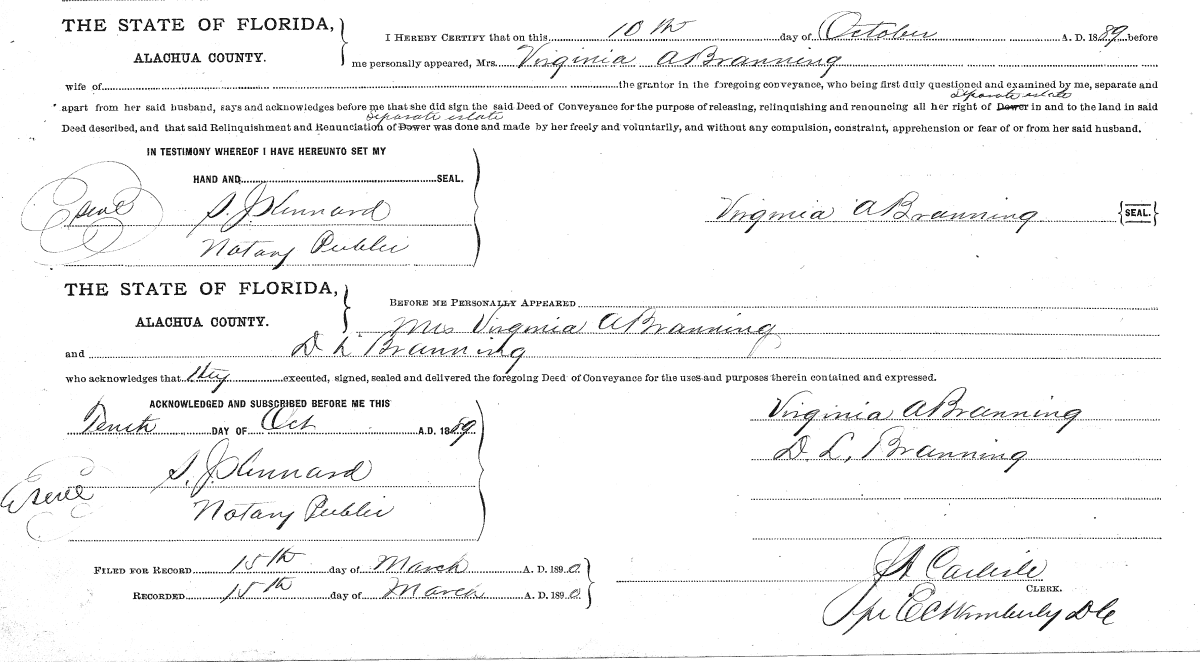 THE STATE OF FLORIDA,
ALACHUA COUNTY.
I HEREBY CERTIFY that on this 10th day of October A. D. 1889 before
me personally appeared, Mrs. Virginia A Branning
wife of the grantor in the foregoing conveyance, who being first duly questioned and examined by me, separate and
separate estate
apart from her said husband, says and acknowledges before me that she did sign the said Deed of Conveyance for the purpose of releasing, relinquishing and renouncing all her right of Dower in and to the land in said
separate estate
Deed described, and that said Relinquishment and Renunciation of Dower was done and made by her freely and voluntarily, and without any compulsion, constraint, apprehension or fear of or from her said husband.
IN TESTIMONY WHEREOF I HAVE HEREUNTO SET MY
HAND AND SEAL.
S. J. Kennard
Notary Public
Virginia A Branning {SEAL.}
THE STATE OF FLORIDA,
ALACHUA COUNTY.
BEFORE ME PERSONALLY APPEARED
Mrs Virginia A Branning
and D L Branning
who acknowledges that they executed, signed, sealed and delivered the foregoing Deed of Conveyance for the uses and purposes therein contained and expressed.
ACKNOWLEDGED AND SUBSCRIBED BEFORE ME THIS
Tenth DAY OF Oct A.D. 1889
S. J. Kennard
Notary Public
Virginia A Branning
D. L. Branning
FILED FOR RECORD 15th day of March A. D. 1890
RECORDED 15th day of March A. D. 1890
J A Carlisle
CLERK.
pr E C Wimberly D C